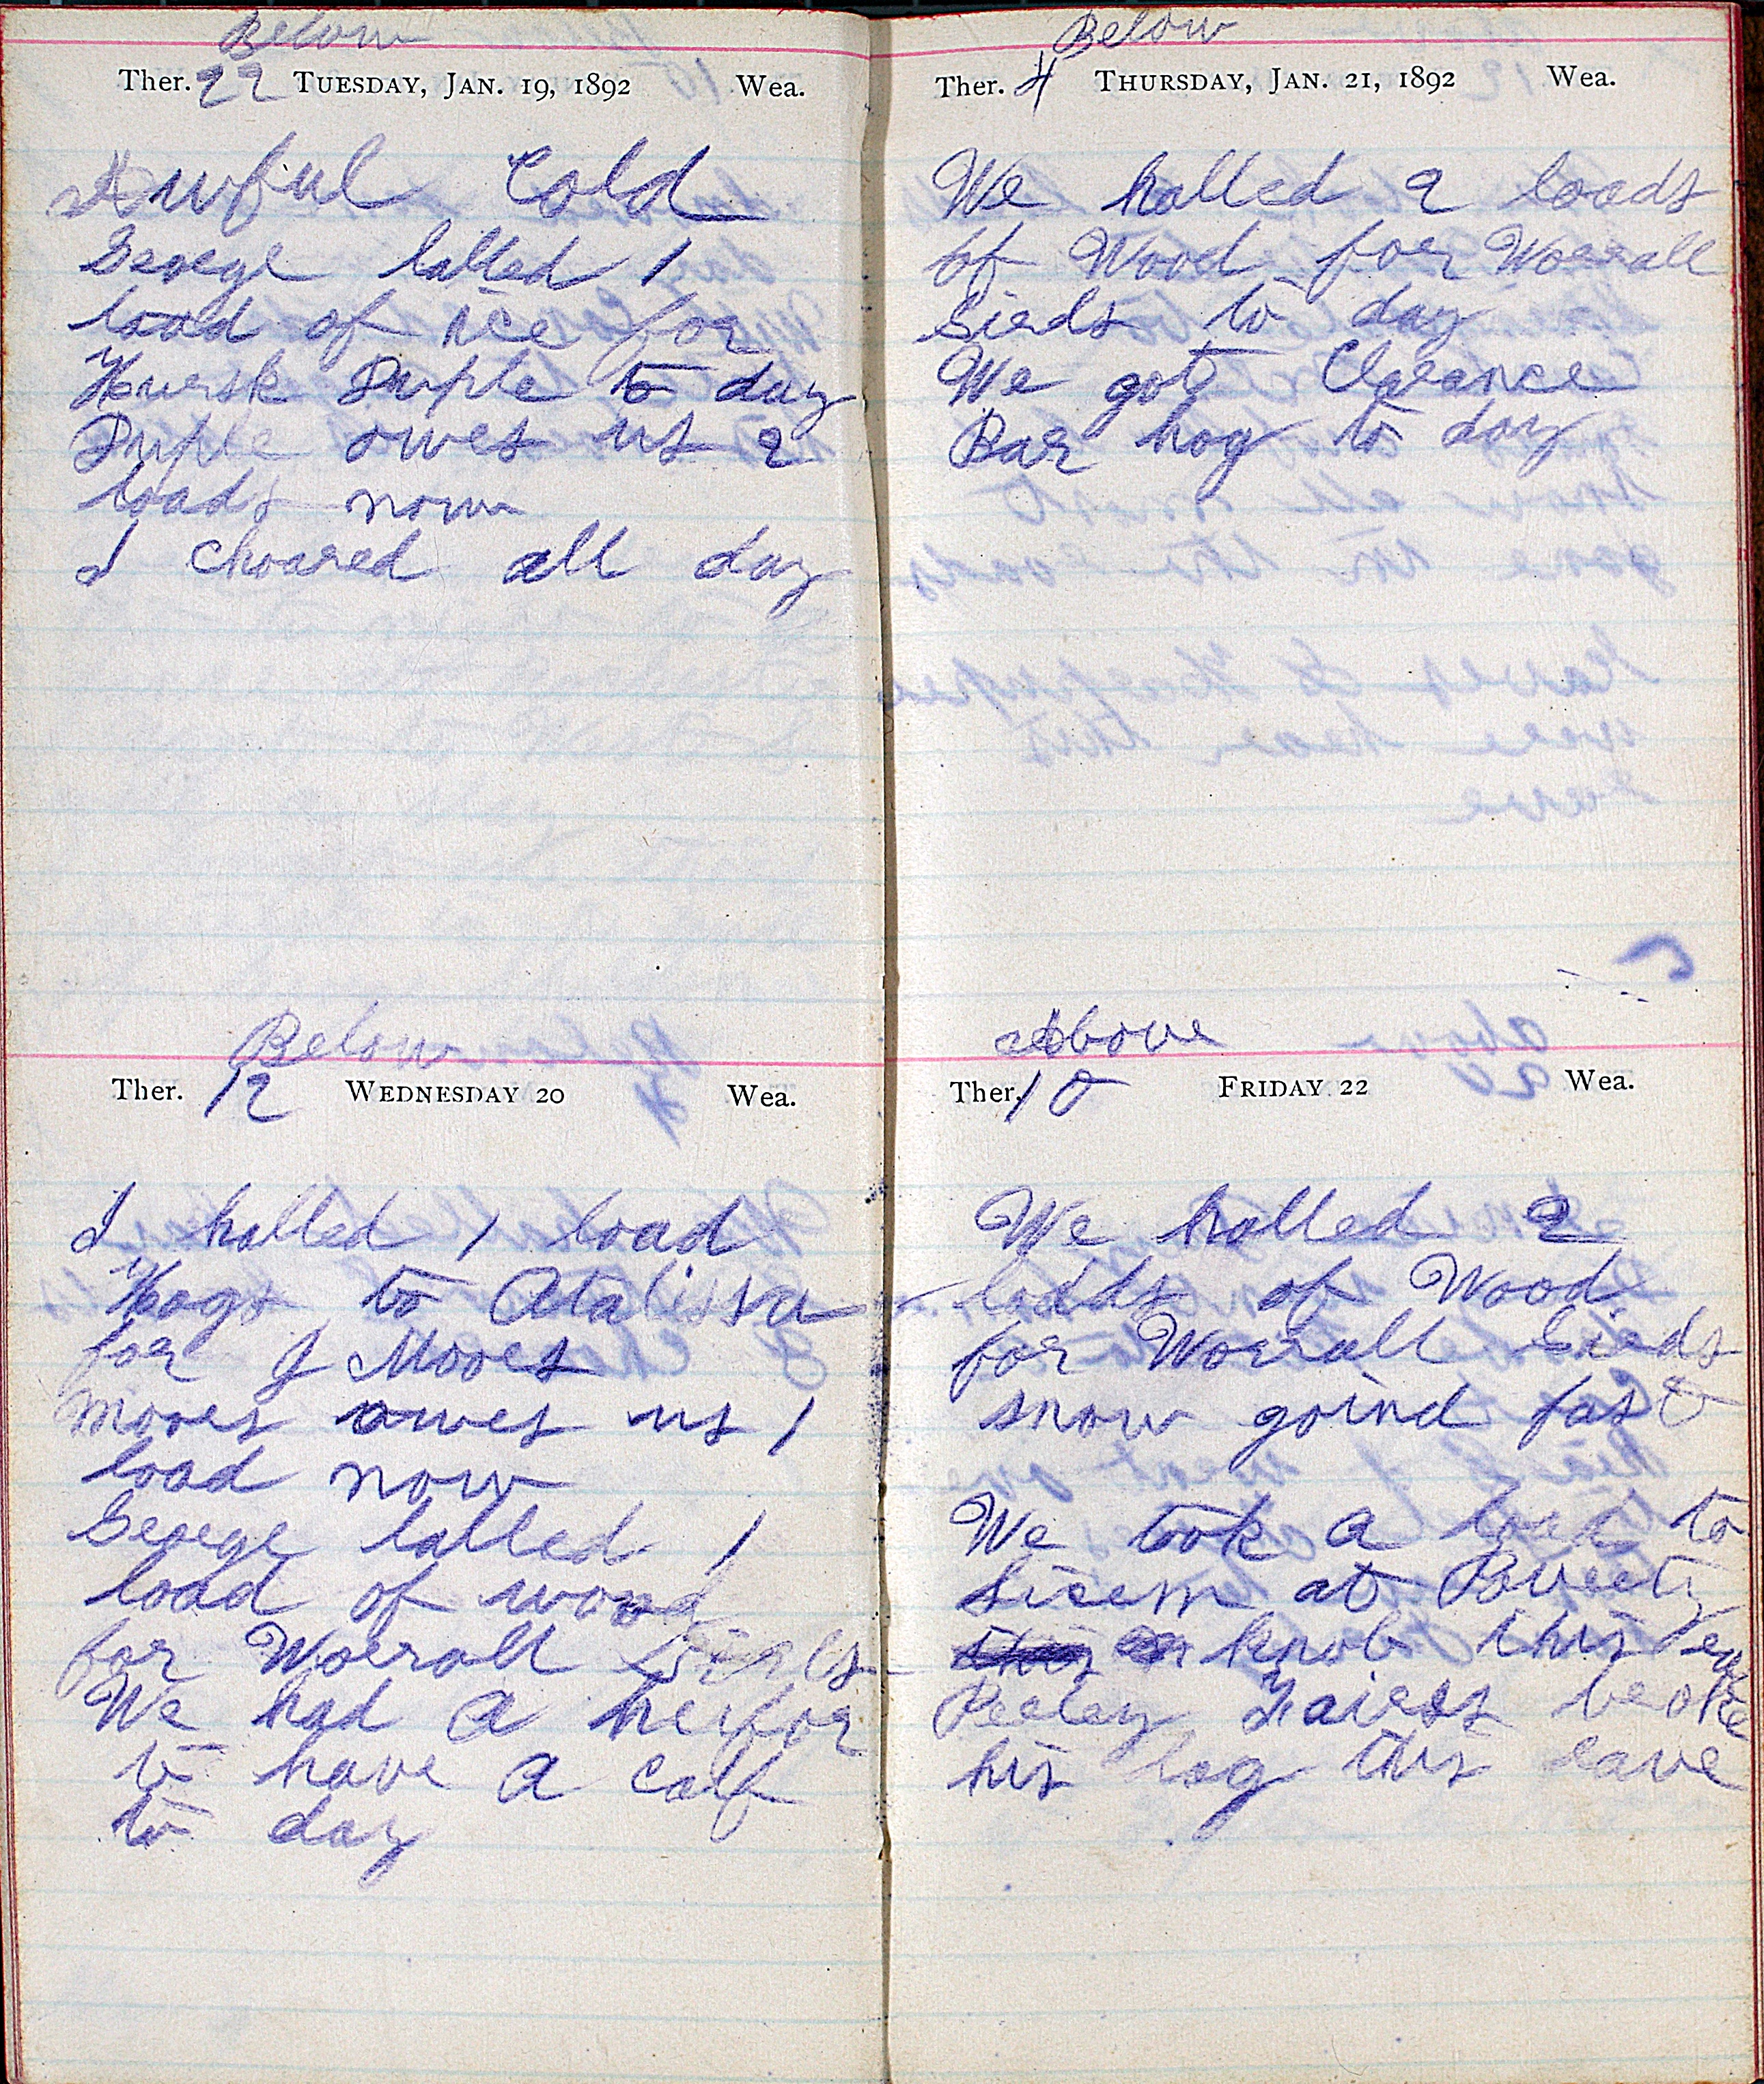 Below
Ther. 22 TUESDAY, JAN. 19, 1892 Wea.
Awful Cold
George halled 1
load of ice for
Huersk Duple to day
Duple owes us 2
loads now
I choared all day
Below
Ther. 12 WEDNESDAY 20 Wea.
I halled 1 load
Hogs to Atalissa
for J Moores
Moores owes us 1
load now
George halled 1
load of wood
for Worrall Sirds
We had a heifor
to have a calf
to day
Below
Ther. 4 THURSDAY, JAN. 21, 1892 Wea.
We halled 2 loads
of Wood for Worrall
Sieds to day
We got Clarance
Bar hog to day
Above
Ther. 10 FRIDAY 22 Wea.
We halled 2
lodds of Wood
for Worrall Sieds
snow goind fast
We took a load to
at Poverty
knob this eve
broke
his leg this eave